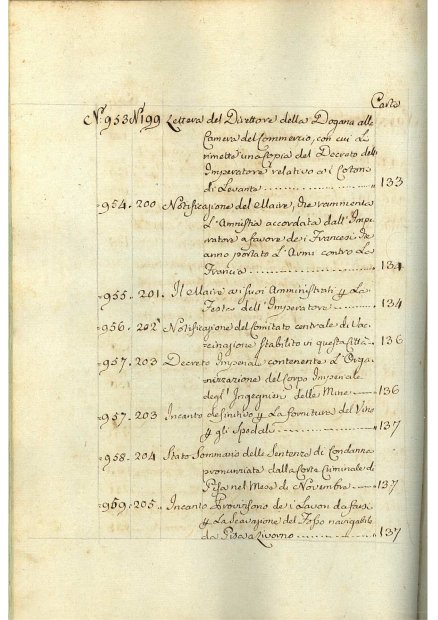 Carte
N.° 953 N.° 199 Lettera del Direttore della Dogana alla
Camera del Commercio, con cui Le
rimette una Copia del Decreto dell'
Imperatore relativo ai Cotoni
di Levante 133
954. 200 Notificazione del Maire, che rammenta
L'Amnistia accordata dall'Impe-
ratore a favore dei Francesi che
anno portato L'Armi contro La
Francia 134
955. 201. Il Maire ai suoi Amministrati p. La
Festa dell'Imperatore 134
956. 202 Notificazione del Comitato centrale di Vac-
cinazione Stabilito in questa Città 136
957. 203 Decreto Imperiale contenente L'Orga-
nizzazione del Corpo Imperiale
degl'Ingegnieri delle Mine 136
957. 203 Incanto definitivo p. La fornitura del Vino
p. gli Spedali 137
958. 204 Stato Sommario delle Sentenze di Condanna
pronunziata dalla Corte Criminale di
Pisa nel Mese di Novembre 137
959. 205. Incanto Provvisorio dei Lavori da farsi
p. La Scavazione del Fosso navigabile
da Pisa a Livorno 137